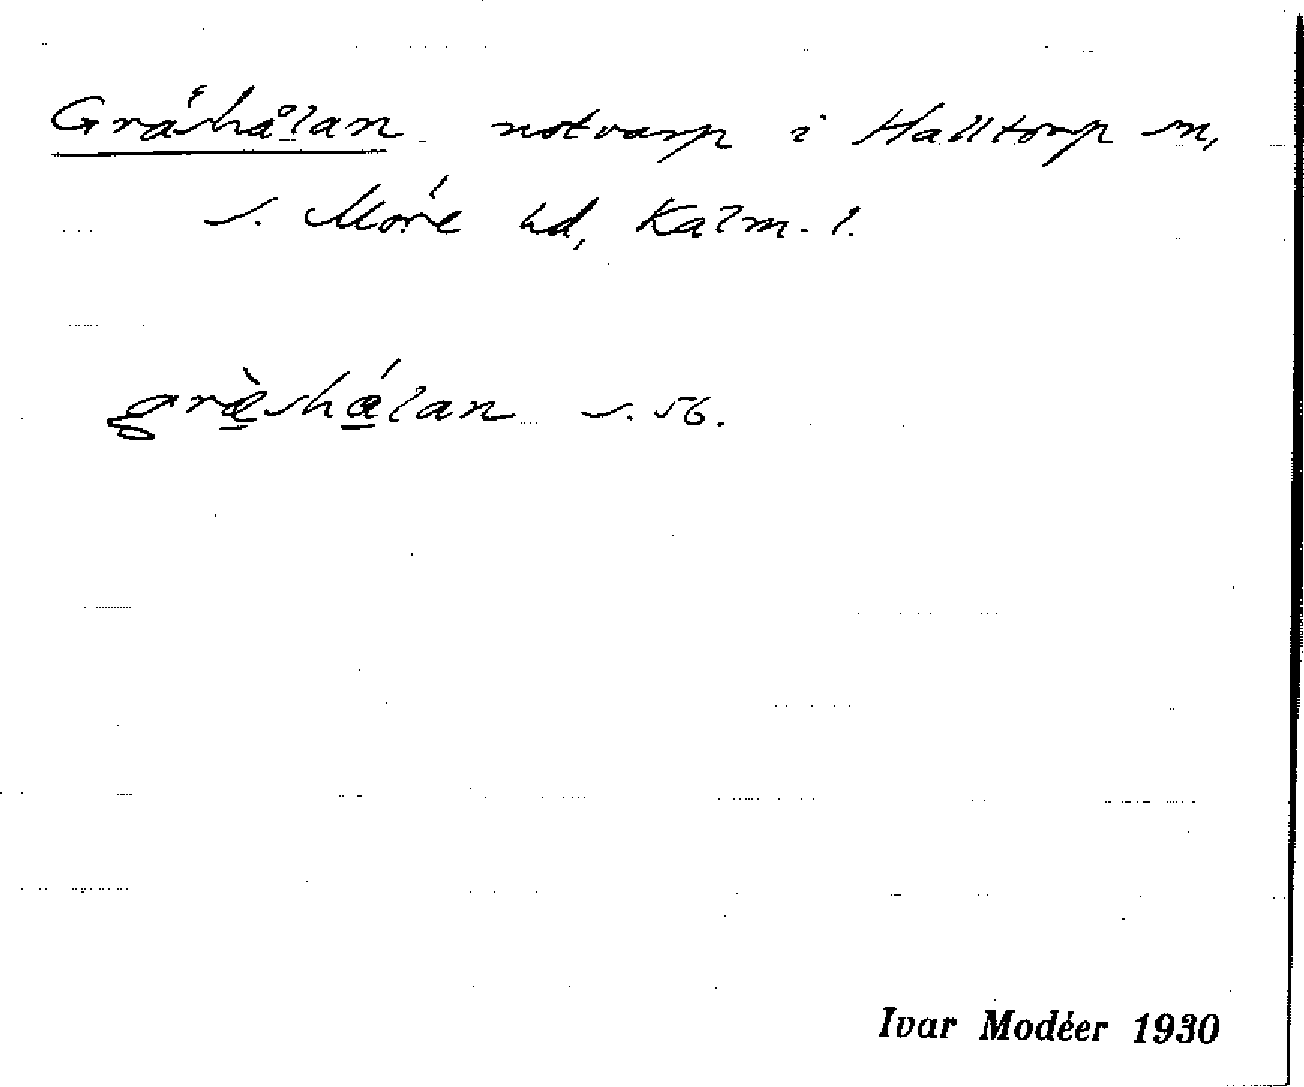 Gråshålan notvarp i Halltorp sn,
S. Möre hd, Kalm. l.
græ̀shǽlan s. 56.
Ivar Modéer 1930